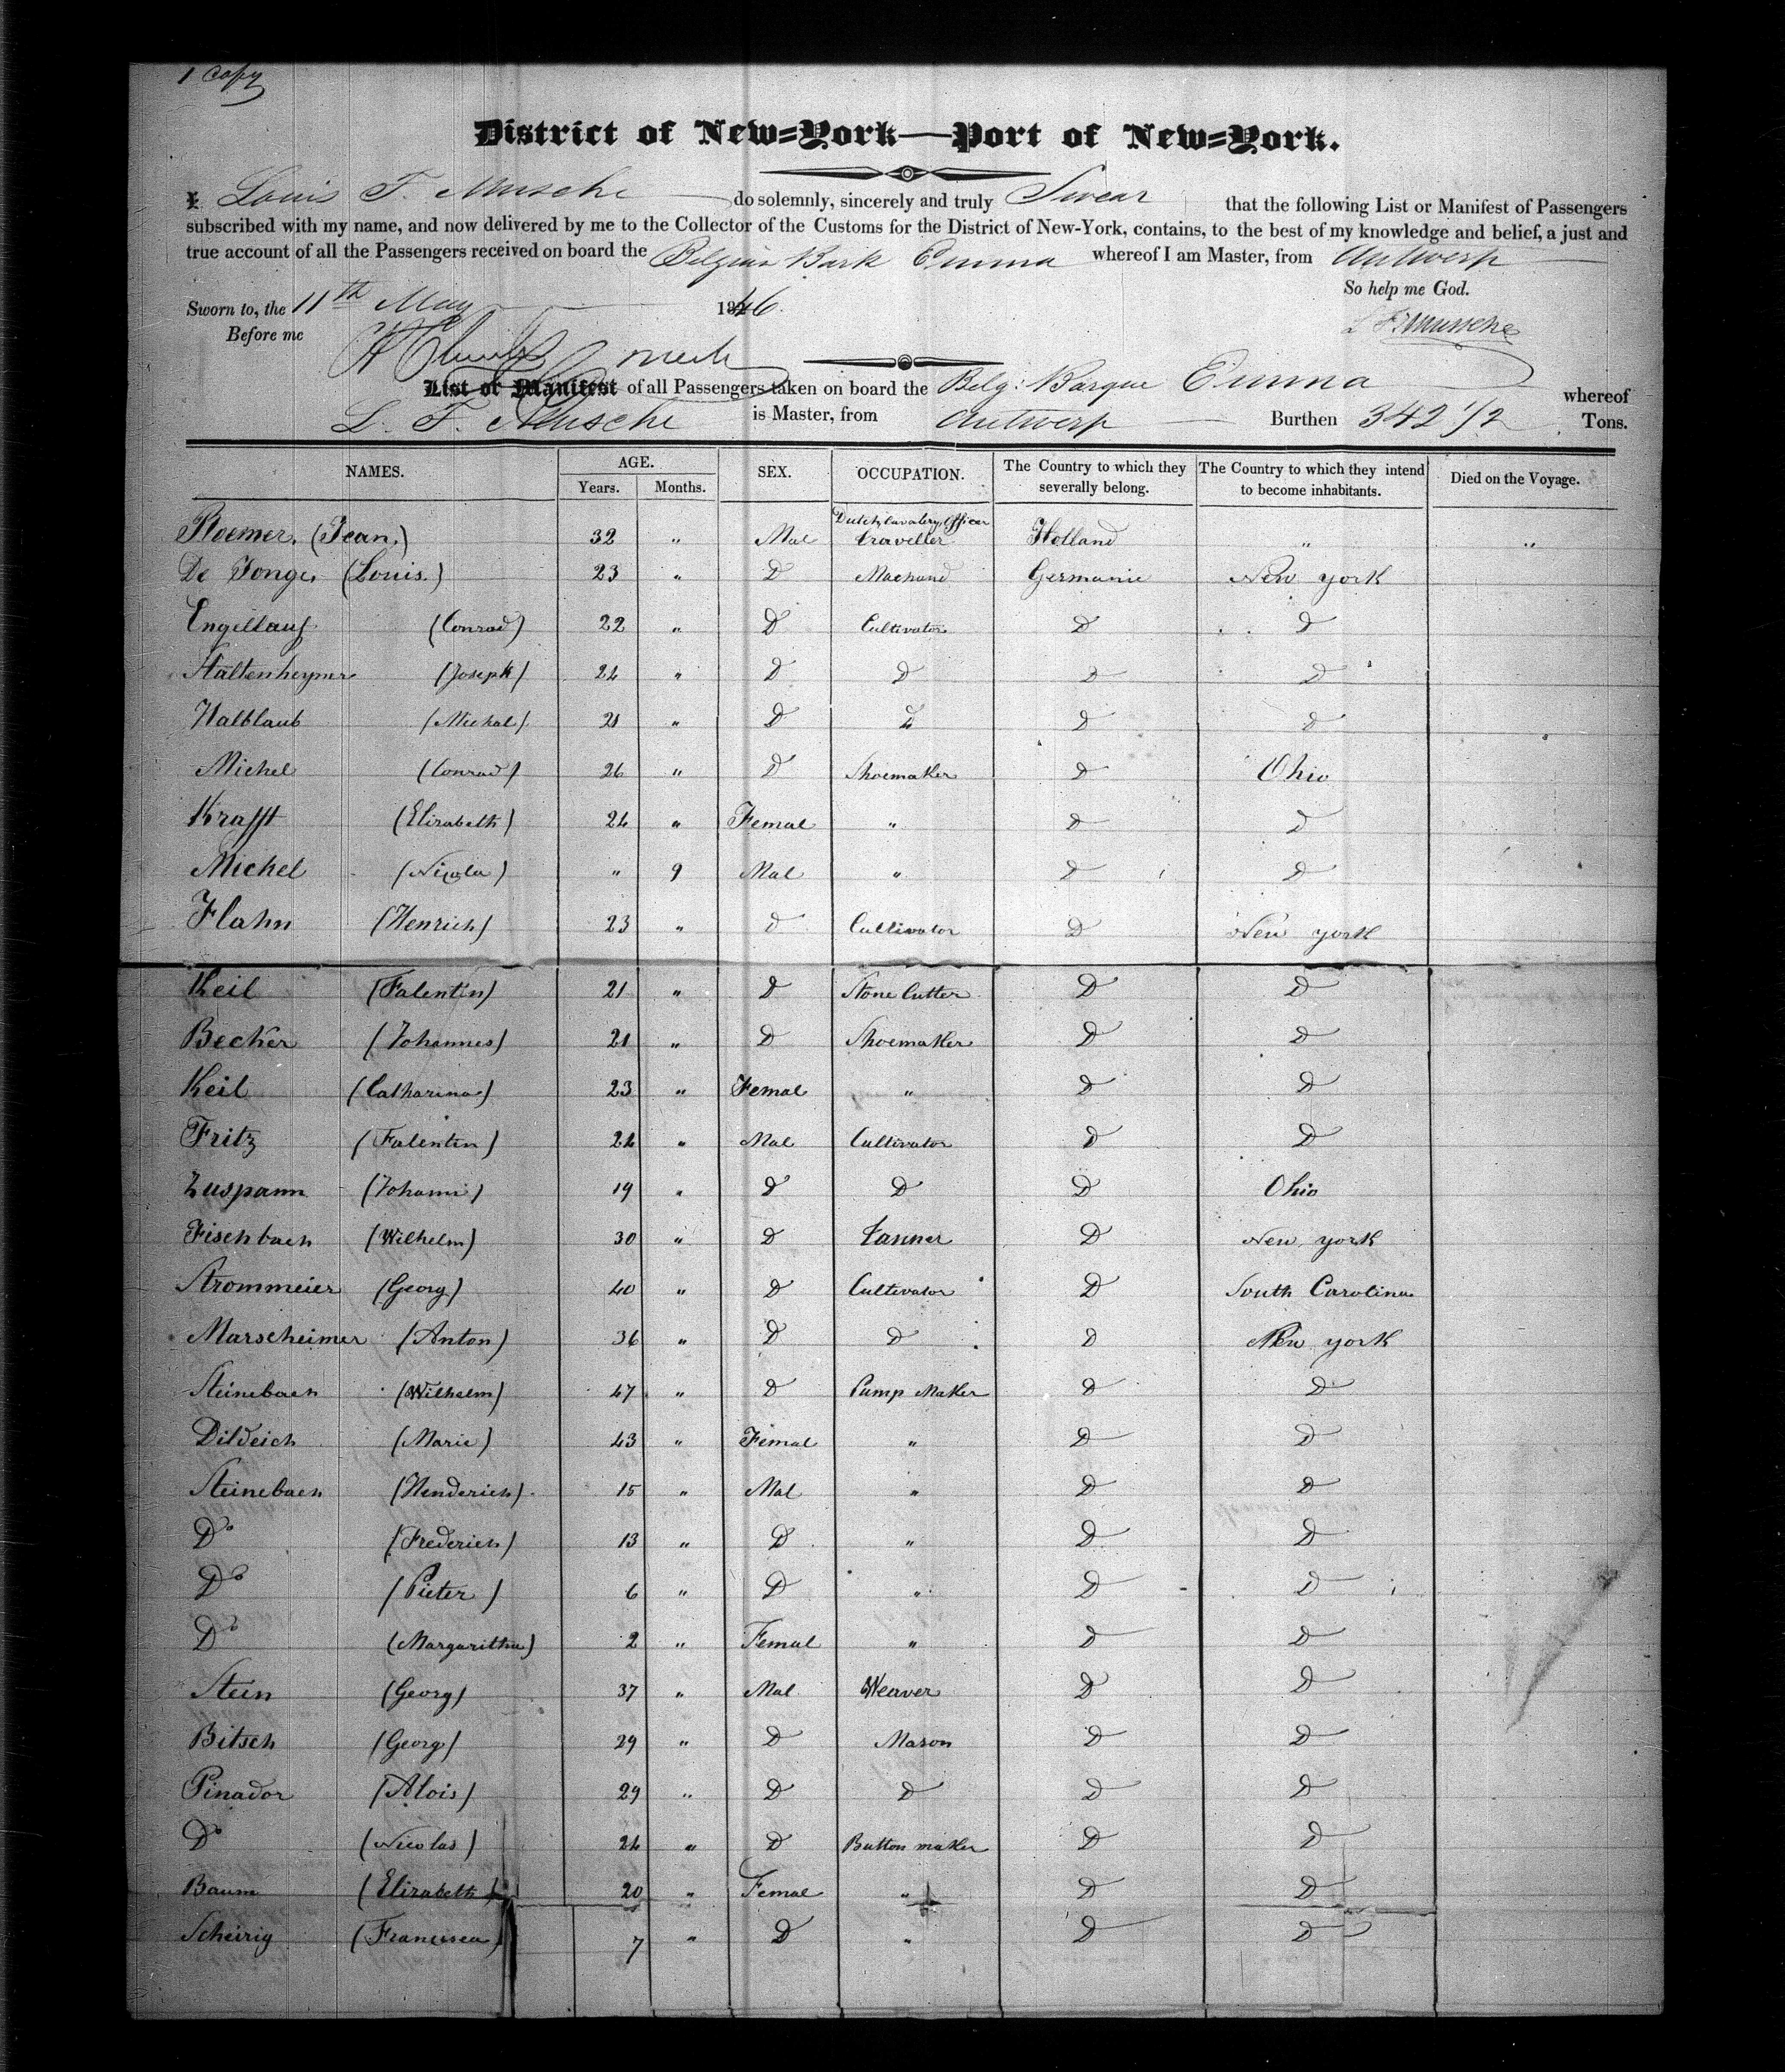 1 Copy
District of New-York—Port of New-York.
I, Louis F. Musche do solemnly, sincerely and truly Swear that the following List or Manifest of Passengers
subscribed with my name, and now delivered by me to the Collector of the Customs for the District of New-York, contains, to the best of my knowledge and belief, a just and
true account of all the Passengers received on board the Belgian Bark Emma whereof I am Master, from Antwerp
So help me God.
Sworn to, the 11th May 1846.
L F. Musche
Before me
List or Manifest of all Passengers taken on board the Belg: Barque Emma whereof
L. F. Musche is Master, from Antwerp Burthen 342 1/2 Tons.
NAMES. AGE. Years. Months. SEX. OCCUPATION. The Country to which they severally belong. The Country to which they intend to become inhabitants. Died on the Voyage.
Roemer. (Jean.) 32 " Mal Dutch Cavalery Officer traveller Holland " "
De Jonge, (Louis.) 23 " D Machand Germanie New york
(Conrad) 22 " D Cultivator D D
(Joseph) 24 " D D D D
Halblaub (Michal) 21 " D D D D
Michel (Conrad) 26 " D Shoemaker D Ohio
Krafft (Elisabeth) 24 " Femal " D D
Michel (Nicola) " 9 Mal " D D
Hahn (Henrich) 23 " D Cultivator D New york
Keil (Falentin) 21 " D Stone Cutter D D
Becker (Johannes) 21 " D Shoemaker D D
Keil (Catharina) 23 " Femal " D D
Fritz (Falentin) 24 " Mal Cultivator D D
Zuspann (Johann) 19 " D D D Ohio
Fischbach (Wilhelm) 30 " D tanner D New york
Strommeier (Georg) 40 " D Cultivator D South Carolina
Marscheimer (Anton) 36 " D D D New york
Steinebach (Wilhelm) 47 " D Pump Maker D D
Dildeich (Marie) 43 " Femal " D D
Steinebach (Henderich) 15 " Mal " D D
Do (Frederich) 13 " D " D D
Do (Pieter) 6 " D " D D
Do (Margaritha) 2 " Femal " D D
Stein (Georg) 37 " Mal Weaver D D
Bitsch (Georg) 29 " D Mason D D
Pinador (Alois) 29 " D D D D
Do (Nicolas) 24 " D Button maker D D
Baum (Elisabeth) 20 " Femal " D D
Scheirig (Francisca) 7 " D " D D